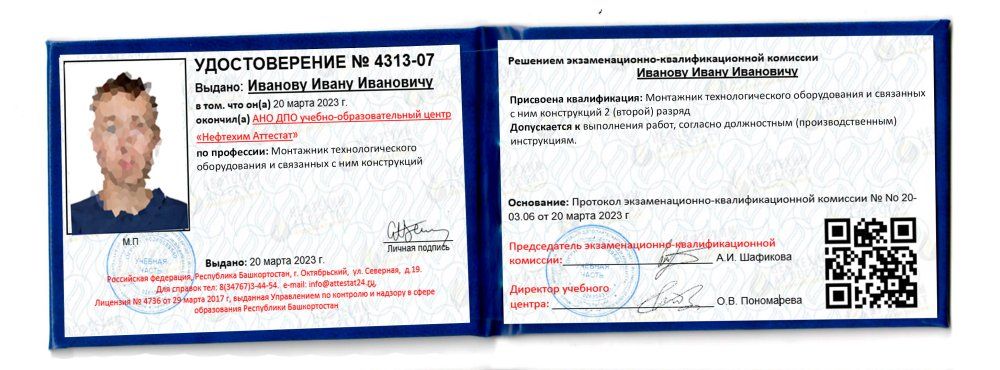 УДОСТОВЕРЕНИЕ № 4313-07
Выдано: Иванову Ивану Ивановичу
в том. что он(а) 20 марта 2023 г.
окончил(а) АНО ДПО учебно-образовательный центр
«Нефтехим Аттестат»
по профессии: Монтажник технологического
оборудования и связанных с ним конструкций
М.П
Личная подпись
УЧЕБНАЯ
ЧАСТЬ
Выдано: 20 марта 2023 г.
Российская федерация, Республика Башкортостан, г. Октябрьский, ул. Северная, д.19.
Для справок тел: 8(34767)3-44-54. e-mail: info@attestat24.ru,
Лицензия № 4736 от 29 марта 2017 г, выданная Управлением по контролю и надзору в сфере
образования Республики Башкортостан
Решением экзаменационно-квалификационной комиссии
Иванову Ивану Ивановичу
Присвоена квалификация: Монтажник технологического оборудования и связанных
с ним конструкций 2 (второй) разряд
Допускается к выполнения работ, согласно должностным (производственным)
инструкциям.
Основание: Протокол экзаменационно-квалификационной комиссии № No 20-
03.06 от 20 марта 2023 г
Председатель экзаменационно-квалификационной
комиссии: А.И. Шафикова
УЧЕБНАЯ
ЧАСТЬ
Директор учебного
центра: О.В. Пономарева